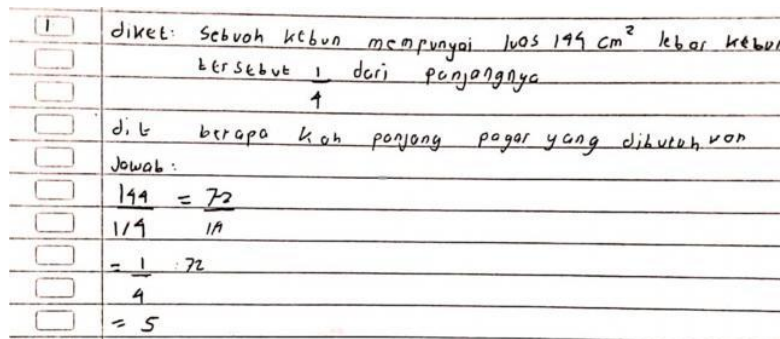 1 diket: Sebuah kebun mempunyai luas 144 cm² lebar kebun
tersebut 1/4 dari panjangnya
dit berapa kah panjang pagar yang dibutuhkan
Jawab:
144/1/4 = 72
= 1/4 : 72
= 5